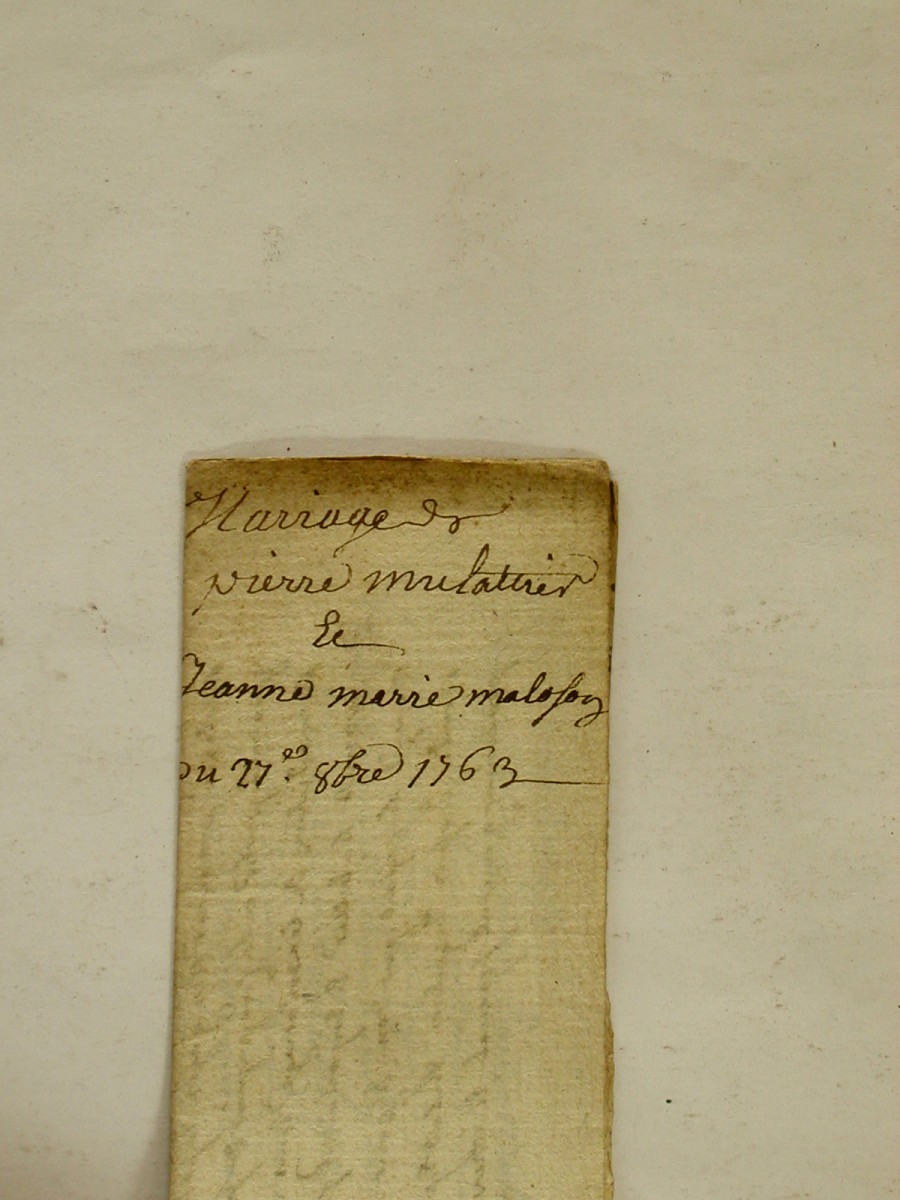 Mariage de
pierre mulattier
Et
Jeanne marie maloson
du 27.e 8bre 1763